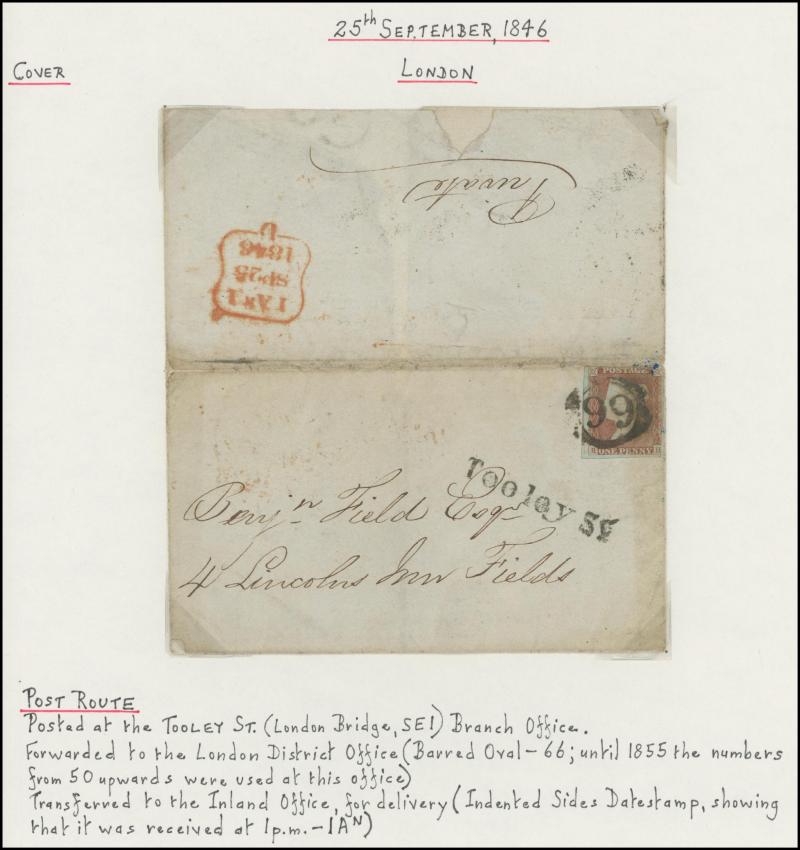 25th SEPTEMBER, 1846
COVER
LONDON
Private
1AN1
SP25
1846
U
POSTAGE
99
ONE PENNY
Tooley St
Benjn Field Esqr
4 Lincolns Inn Fields
POST ROUTE
Posted at the TOOLEY ST. (London Bridge, SE1) Branch Office.
Forwarded to the London District Office (Barred Oval - 66; until 1855 the numbers
from 50 upwards were used at this office)
Transferred to the Inland Office, for delivery (Indented Sides Datestamp, showing
that it was received at 1p.m. - 1AN)